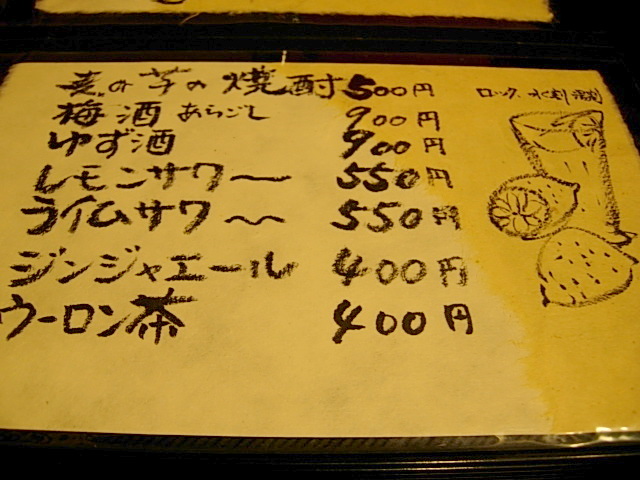 麦の芋の焼酎 500円 ロック、水割、湯割
梅酒 あらごし 900円
ゆず酒 900円
レモンサワー 550円
ライムサワー 550円
ジンジャエール 400円
ウーロン茶 400円